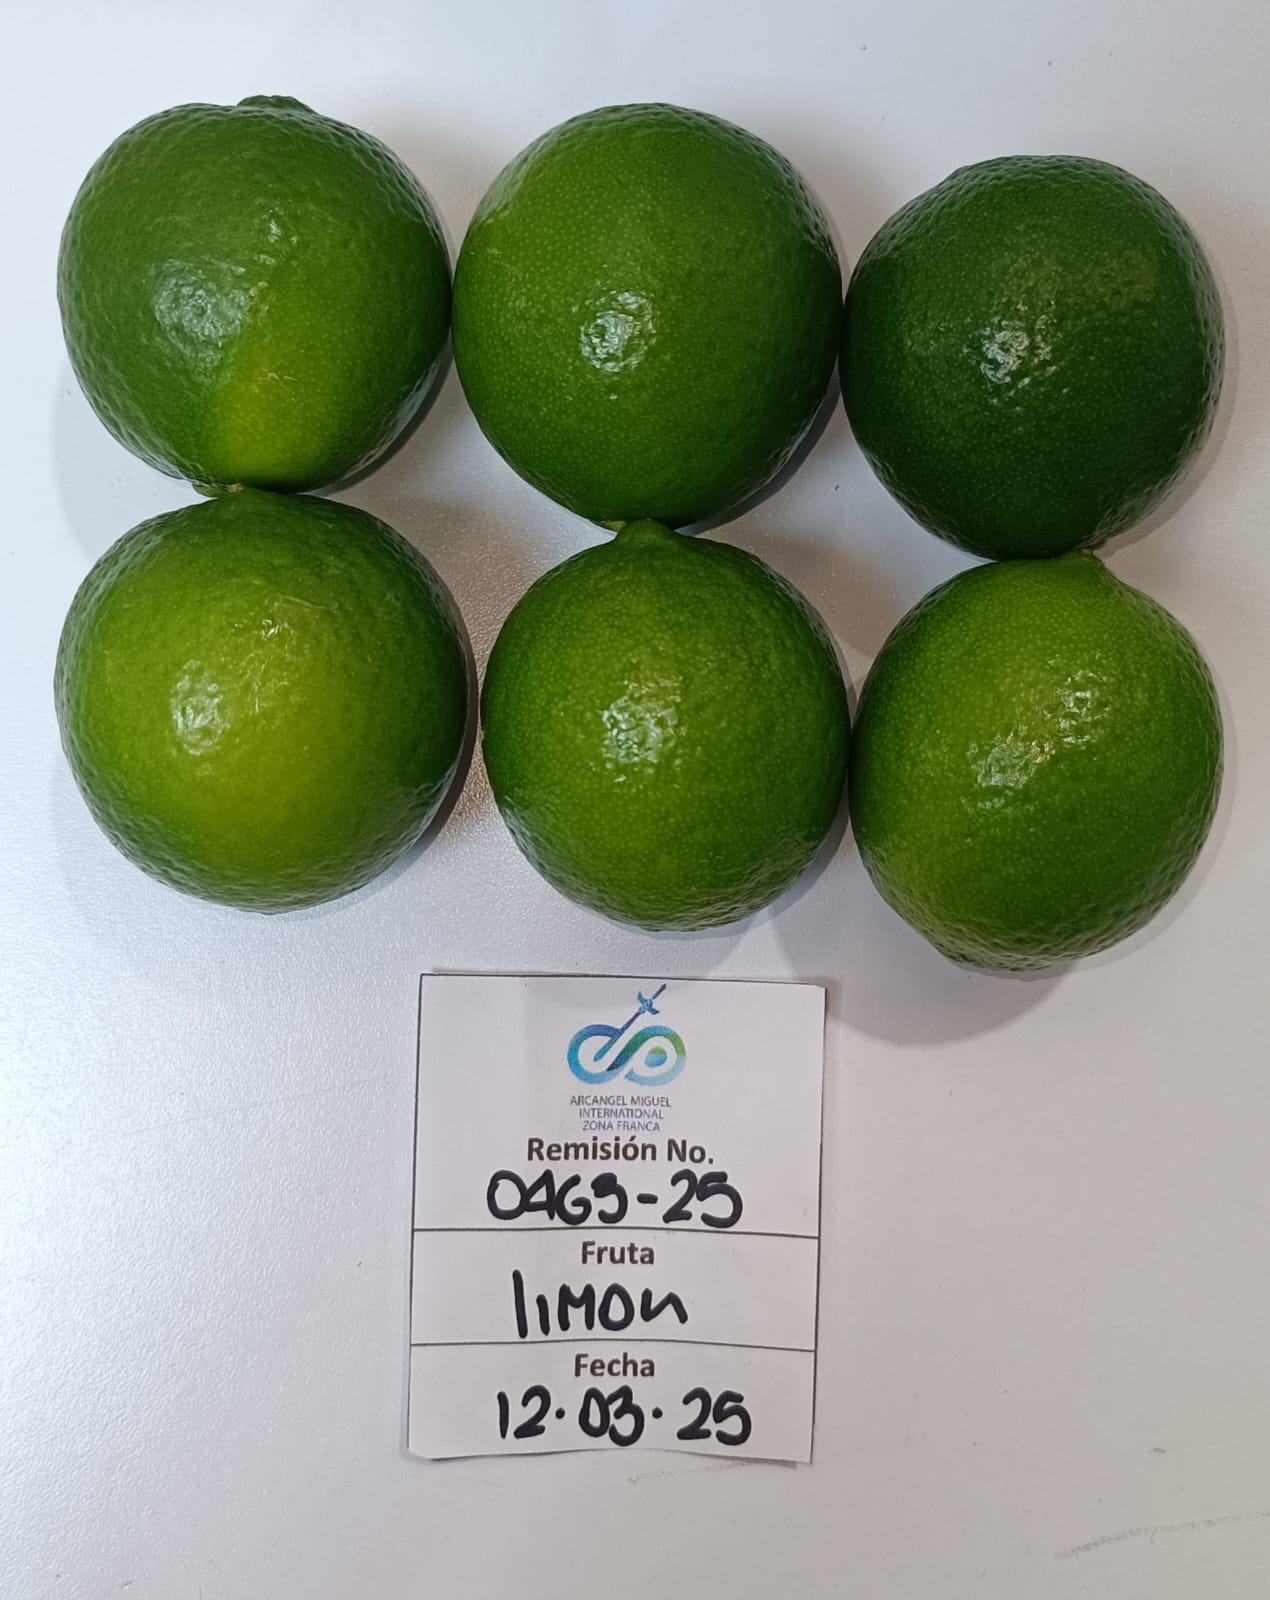 ARCANGEL MIGUEL
INTERNATIONAL
ZONA FRANCA
Remisión No.
0463-25
Fruta
limon
Fecha
12.03.25